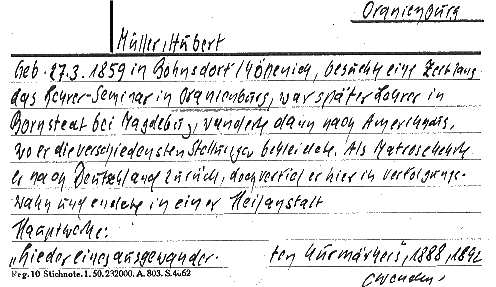 Oranienburg
Müller, Hubert
Geb. 27.3. 1859 in Bohnsdorf/Köpenick, besuchte eine Zeitlang
das Lehrer-Seminar in Oranienburg, war später Lehrer in
Bornstedt bei Magdeburg, wanderte dann nach Amerika aus,
wo er die verschiedensten Stellungen bekleidete. Als Matrose kehrte
er nach Deutschland zurück, doch verfiel er hier in Verfolgungs-
wahn und endete in einer Heilanstalt
Hauptwerke:
"Lieder eines ausgewander- ten Kurmärkers", 1888, 1892
Reg. 10 Stichnote. 1. 50. 232000. A. 803. S. 4062